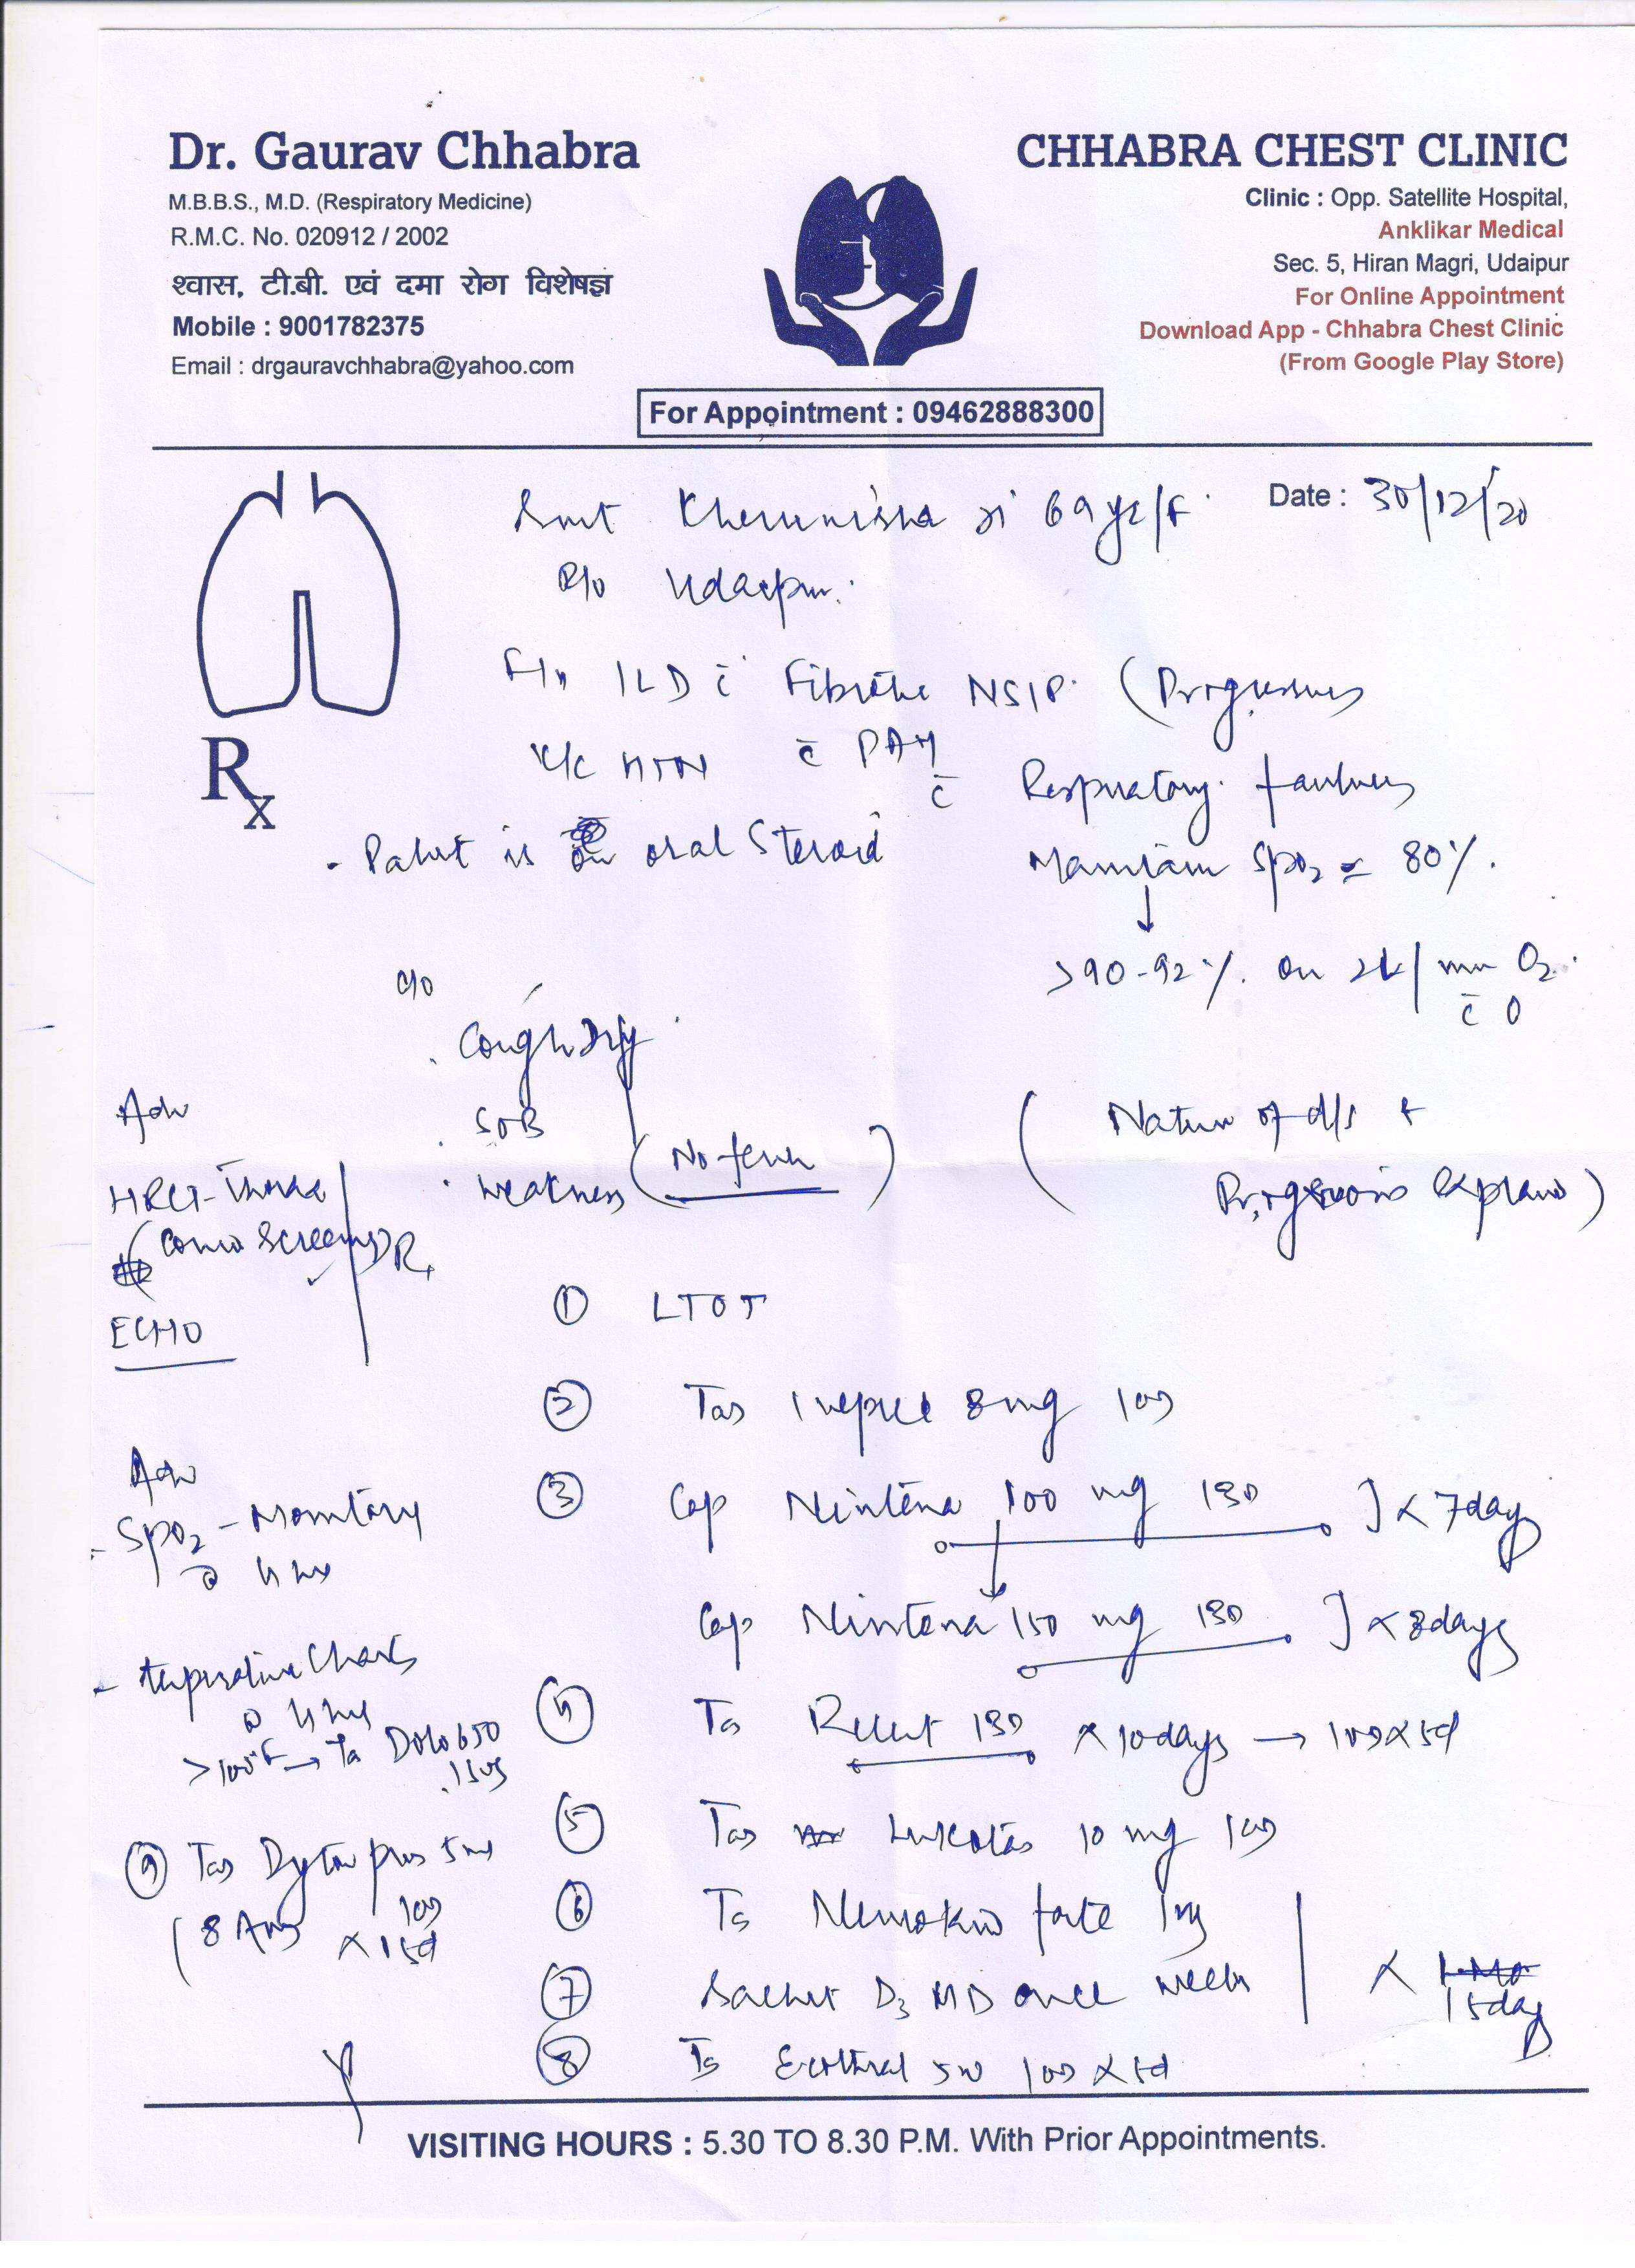 Dr. Gaurav Chhabra
M.B.B.S., M.D. (Respiratory Medicine)
R.M.C. No. 020912 / 2002
श्वास, टी.बी. एवं दमा रोग विशेषज्ञ
Mobile : 9001782375
Email : drgauravchhabra@yahoo.com
CHHABRA CHEST CLINIC
Clinic : Opp. Satellite Hospital,
Anklikar Medical
Sec. 5, Hiran Magri, Udaipur
For Online Appointment
Download App - Chhabra Chest Clinic
(From Google Play Store)
For Appointment : 09462888300
Date : 30/12/20
Smt 69 yr/F
R/o Udaipur
ILD c̄ Fibrotic NSIP (Progressive
K/c HTN c̄ PAH
c̄ Respiratory failure
- Patient is on oral Steroid
Maintain SpO2 = 80%
↓
>90-92% on 2L/min O2
c/o
Cough Dry
SOB
Weakness (No fever)
(Nature of d/s +
Prognosis explained)
Adv
HRCT-Thorax
(Corona Screening
ECHO
① LTOT
② Tab 8mg 1OD
③ Cap Nintena 100 mg 1BD ] x 7day
Cap Nintena 150 mg 1BD ] x 8days
④ Ta 1BD x 10days → 1OD x 5d
⑤ Tab 10 mg 1OD
⑥ Ta forte
⑦ Sachet D3 once week
x 15day
⑧ Ta
Adv
- SpO2 - Monitory
@ 4 hrs
- temperature Charts
@ 4 hrs
>100°F → Ta Dolo 650
⑨ Tab Dytor plus 5mg
(8 Am) 1OD
x 15d
Rx
VISITING HOURS : 5.30 TO 8.30 P.M. With Prior Appointments.